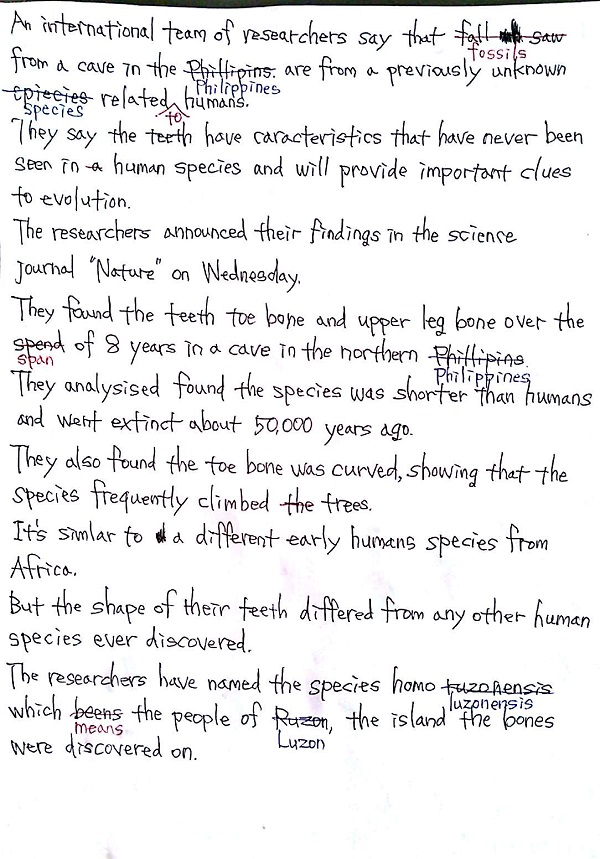 An international team of researchers say that fall saw
fossils
from a cave in the Phillipins. are from a previously unknown
Philippines
cpiecies related humans.
species to
They say the teeth have caracteristics that have never been
seen in a human species and will provide important clues
to evolution.
The researchers announced their findings in the science
journal "Nature" on Wednesday.
They found the teeth toe bone and upper leg bone over the
spend of 8 years in a cave in the northern Phillipins.
span Philippines
They analysised found the species was shorter than humans
and went extinct about 50,000 years ago.
They also found the toe bone was curved, showing that the
species frequently climbed the trees.
It's simlar to a different early humans species from
Africa.
But the shape of their teeth differed from any other human
species ever discovered.
The researchers have named the species homo tuzonensis
luzonensis
which beens the people of Ruzon, the island the bones
means Luzon
were discovered on.